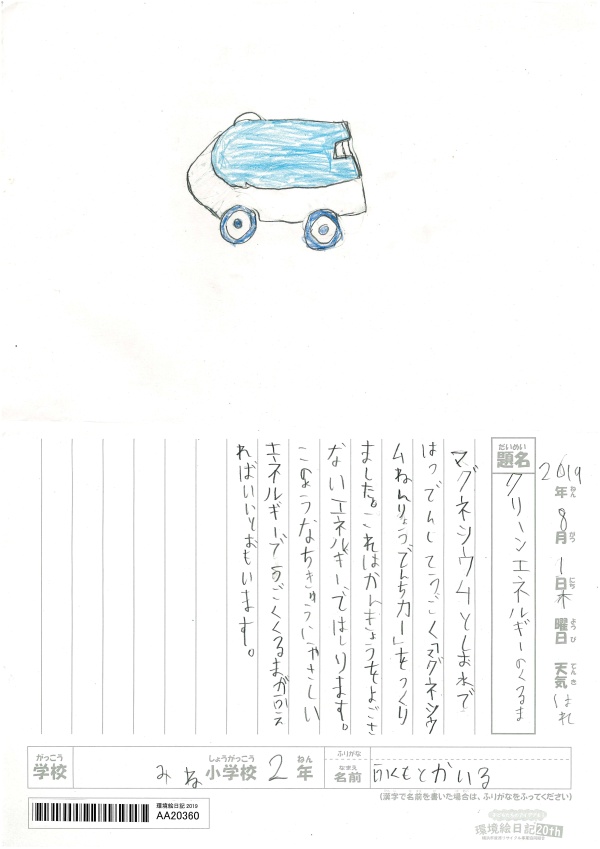 2019年ねん8月がつ1日にち木曜日ようび 天気てんきはれ
題名だいめい
クリーンエネルギーのくるま
マグネシウムとしお水で
はつでんしてうごく「マグネシウ
ムねんりょうでんちカー」をつくり
ました。これはかんきょうをよごさ
ないエネルギーではしります。
このようなちきゅうにやさしい
エネルギーでうごくくるまがふえ
ればいいとおもいます。
学校がっこう みね小学校しょうがっこう 2年ねん
ふりがな
名前なまえ もとかいる
(漢字で名前を書いた場合は、ふりがなをふってください)
環境絵日記 2019
AA20360
環境絵日記20th